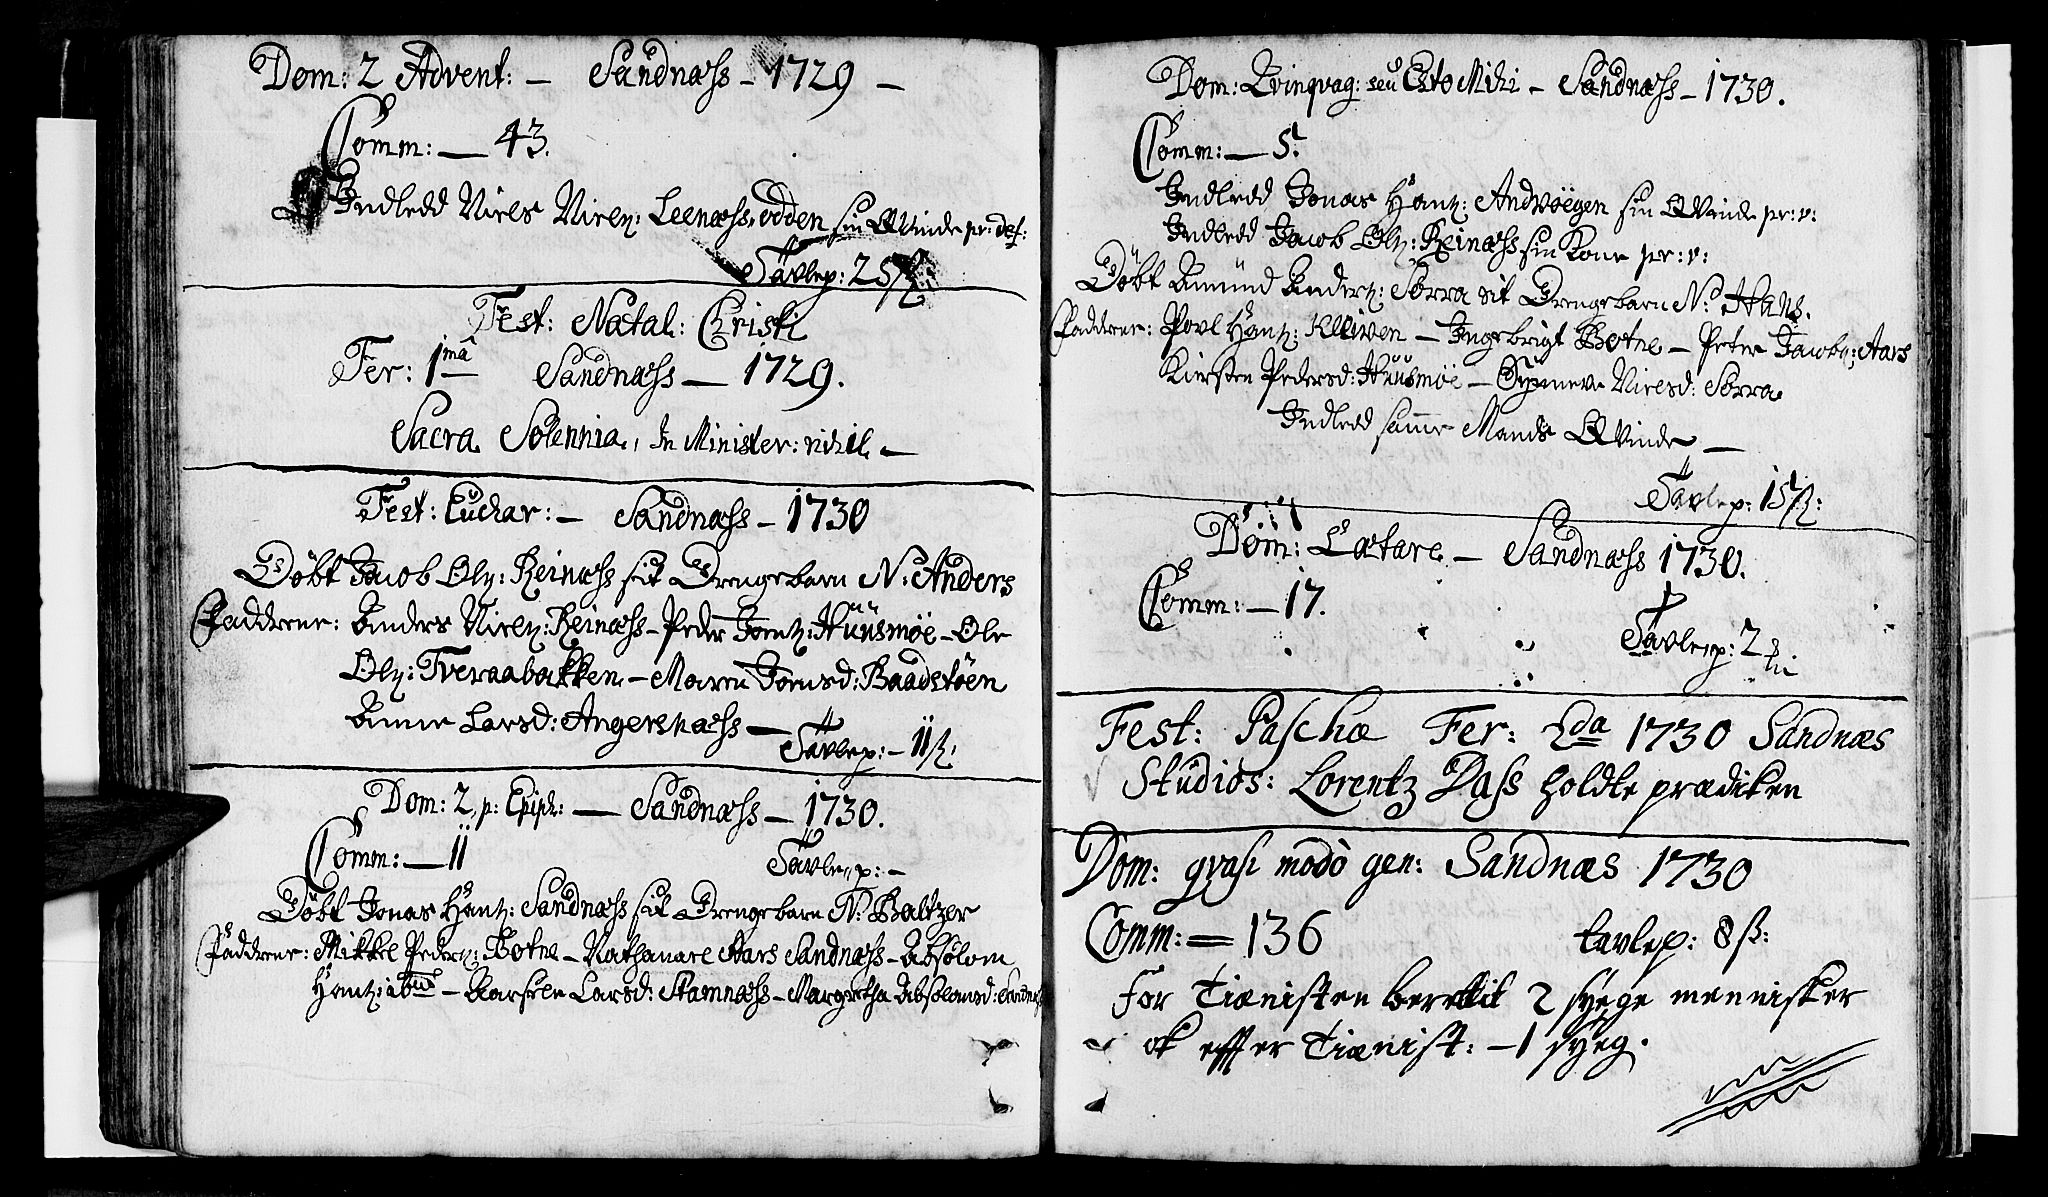 Dom: 2 Advent: — Sandnæss – 1729 –
Comm: — 43.
Indledd Niels Nielß: Leenæss,odden sin Qvinde pr: def:
Tavlep: 25 ß:
Fest: Natal: Christi
Fer: 1ma Sandnæss — 1729.
Sacra Solennia, In Minister: nihil. —
Fest: Euchar: – Sandnæss – 1730
Döbt Jacob Olß: Reinæss sit Drengebarn N: Anders
Faddrene: Anders Nielß: Reinæss – Peder Jentß: Huusmöe – Ole
Olß: Tveraabakken – Maren Joensd: Baadstöen
Anne Larsd: Angersnæss —
Tavlep: – 11 ß:
Dom: 2, p: Epiph: — Sandnæss – 1730.
Comm: — 11
Tavle,,p: –
Döbt Jonas Hanß: Sandnæss sit Drengebarn N: Baltzer
Faddrene: Mikkel Pederß: Botne – Nathanael Aars Sandnæss – Absolom
Hanß: ibid – Larsd: Stamnæss – Margretha Absolomsd: Sandnæss
Dom: Qvinqvag: seu Esto Mihi – Sandnæss – 1730.
Comm: — 5.
Indledd Jonas Hanß: Andvöegen sin Qvinde pr: v:
Indledd Jacob Olß: Reinæss sin Kone pr: v:
Döbt Amund Anderß: Sörra sit Drengebarn N: Hans.
Faddrene: Povl Hanß: Kleiven – Ingebrigt Botne – Peter Jacobß: Aars
Kirsten Pedersd: Huusmöe – Synneve Nielsd: Sörra
Indledd samme Mands Qvinde —
Tavlep: 15 ß:
Dom: Lætare – Sandnæss 1730.
Comm: — 17.
Tavle,p: 2
Fest: Paschæ Fer: 2da 1730 Sandnæs
Studios: Lorentz Dass holdte prædiken
Dom: qvasi modò gen: Sandnæs 1730
Comm: = 136 tavlep: 8 ß:
for Tiænisten berettit 2 syege mennisker
ok effter Tiænist: – 1 syeg.